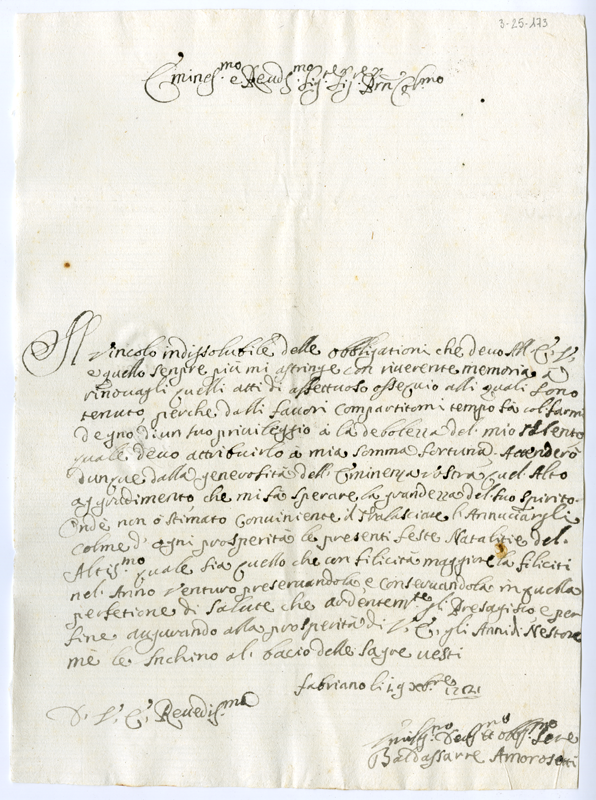 3-25-173
Emines.mo e Reuds.mo Sig.re Sig.re Prn Col.mo
Il vincolo indissolubile delle obbligationi che devo All E. V.
e quello sempre più mi astringe con riverente memoria a
rinovagli quelli atti di affettuoso ossequio alli quali sono
tenuto, perche dalli favori compartitomi tempo fà col farmi
degno d'un suo privileggio à la debolezza del mio talento
quale devo attribuirlo à mia somma fortuna. Attenderò
dunque dalla generosità dell'Eminenza vostra quel Alto
aggradimento che mi fà sperare la grandezza del suo spirito.
Onde non ò stimato conueniente il tralasciare l'Annuciargli
colme d'ogni prosperità le presenti feste Natalitie del.
Altis.mo quale sia quello che con filicità maggiore la filiciti
nel Anno venturo preservandola e conseruandola in quella
perfetione di salute che ardentem.te gli Presagisco e per
fine augurando alla prosperità di V. E. gli Anni di Nestore
mè le Inchino al bacio delle sagre uesti
fabriano li 19 xbre
D. V. E. Reuedis.ma
Baldassarre Amorosetti